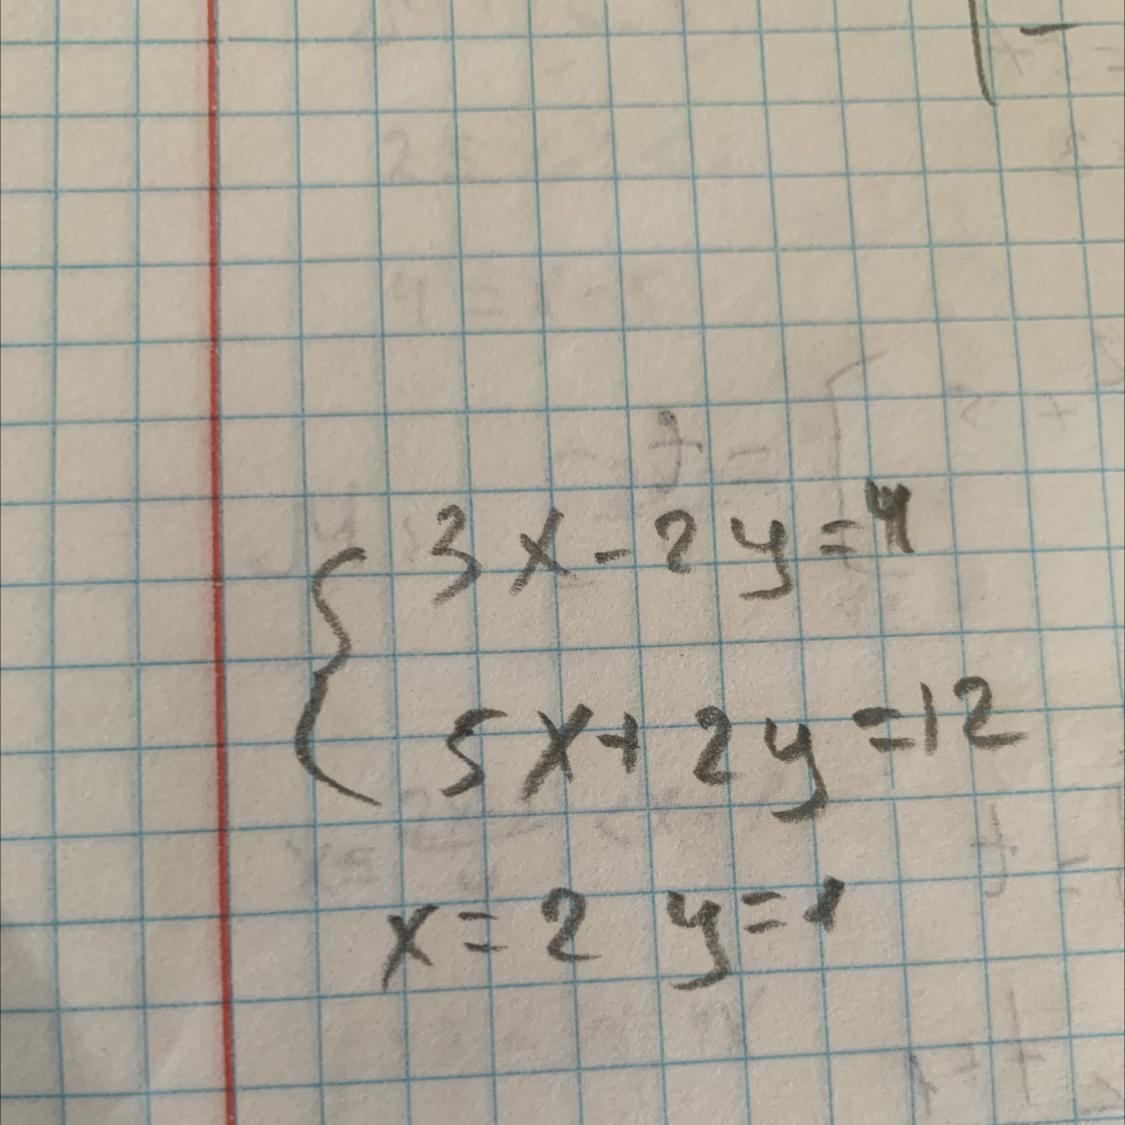 3x-2y=4
5x+2y=12
x=2 y=1